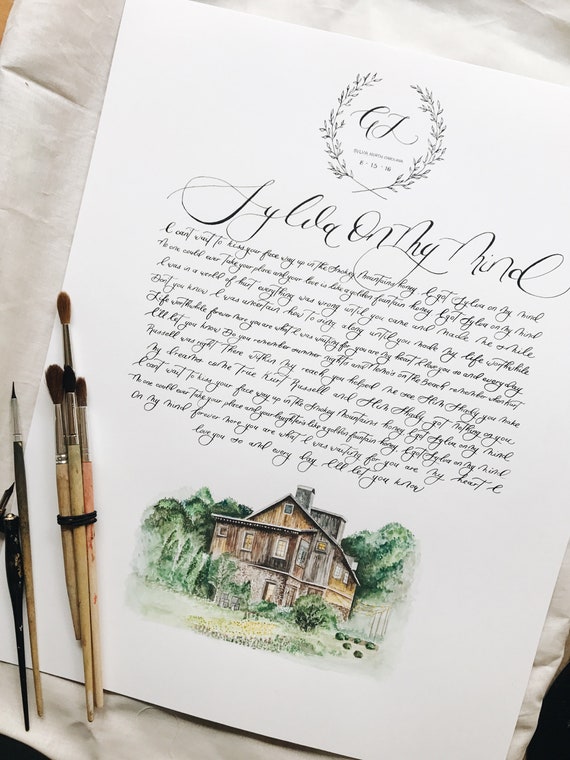 GL
SYLVA, NORTH CAROLINA
6 · 15 · 16
Sylva On My Mind
I can't wait to kiss your face way up in the Smokey Mountains honey I got Sylva on my mind
No one could ever take your place and your love is like a golden fountain honey I got Sylva on my mind
I was in a world of hurt everything was wrong until you came and made me smile
Don't you know I was uncertain how to stay along until you made my life worthwhile
Life worthwhile forever more you are what I was waiting for you are my heart I love you so and every day
I'll let you know Do you remember summer nights and on the Beach remember when
Russell was right There within my reach you helped me one you make
My dreams come True Kurt Russell and got nothing on you
I can't wait to kiss your face way up in the Smokey Mountains honey I got Sylva on my mind
No one could ever take your place and your laughter's like a golden fountain honey I got Sylva on my mind
On my mind forever more you are what I was waiting for you are my heart I
love you so and every day I'll let you know